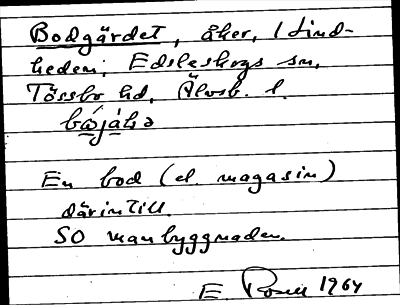 Bodgärdet, åker, Lind-
heden, Edsleskogs sn,
Tössbo hd, Älvsb. l.
En bod (el. magasin)
därintill.
SO manbyggnaden.
E 1964